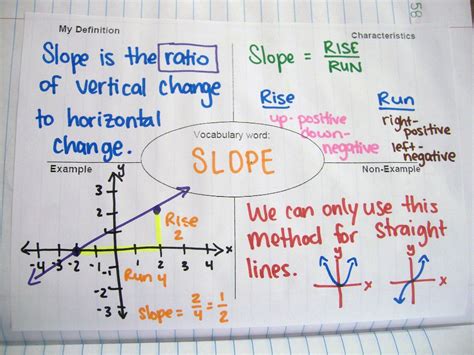 58
My Definition
Characteristics
Slope is the ratio
of vertical change
to horizontal
change.
Slope = RISE
RUN
Rise
up - positive
down-
negative
Run
right-
positive
left-
negative
Vocabulary word:
SLOPE
Example
Non-Example
y
3
2
1
-4 -3 -2 -1 1 2 3 4 x
-1
-2
-3
Rise
2
Run 4
Slope = 2/4 = 1/2
We can only use this
method for straight
lines.
y y
x x